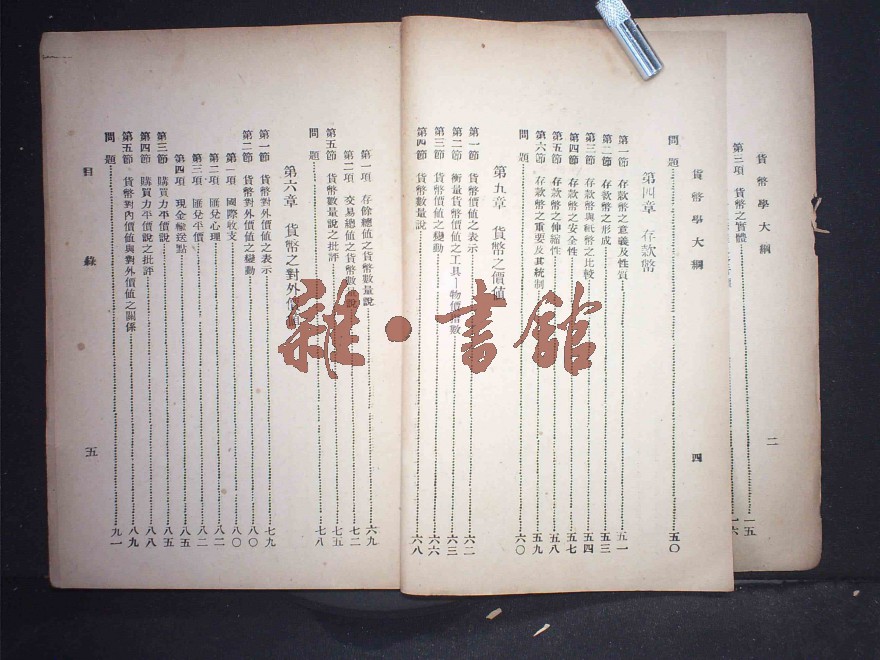 貨幣學大綱
二
第三項 貨幣之實體 一五
一六
貨幣學大綱
四
問題 五〇
第四章 存款幣
第一節 存款幣之意義及性質 五一
第二節 存款幣之形成 五三
第三節 存款幣與紙幣之比較 五四
第四節 存款幣之安全性 五七
第五節 存款幣之伸縮性 五八
第六節 存款幣之重要及其統制 五九
問題 六〇
第九章 貨幣之價値
第一節 貨幣價値之表示 六二
第二節 衡量貨幣價値之工具—物價指數 六三
第三節 貨幣價値之變動 六六
第四節 貨幣數量說 六八
第一項 存餘總値之貨幣數量說 六九
第二項 交易總値之貨幣數量說 七二
第五節 貨幣數量說之批評 七五
問題 七八
第六章 貨幣之對外價値
第一節 貨幣對外價値之表示 七九
第二節 貨幣對外價値之變動 八〇
第一項 國際收支 八〇
第二項 匯兌心理 八二
第三項 匯兌平價 八二
第四項 現金輸送點 八五
第三節 購買力平價說 八五
第四節 購買力平價說之批評 八八
第五節 貨幣對內價値與對外價値之關係 八九
問題 九一
目錄
五
雜·書館